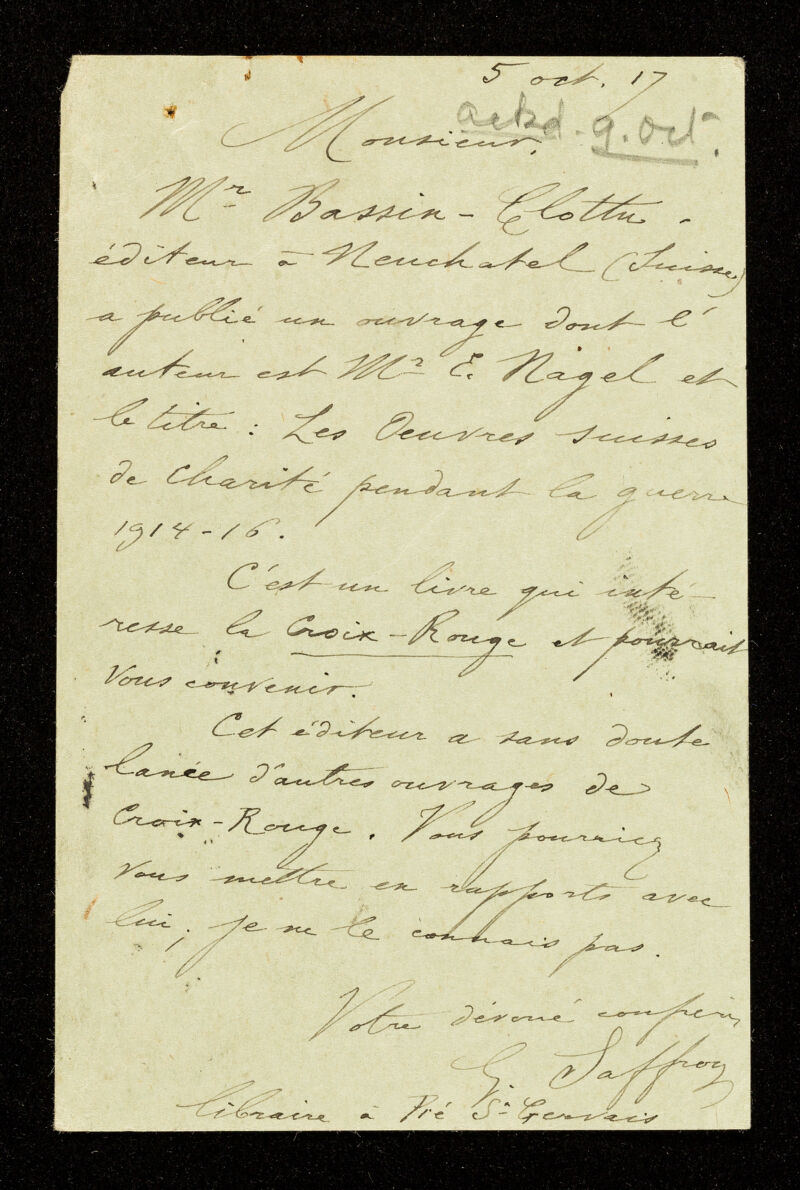 5 oct. 17
ackd. 9. Oct.
Monsieur.
Mr Bassin - Clottu.
éditeur à Neuchatel (Suisse)
a publié un ouvrage dont l'
auteur est Mr E. Nagel et
le titre : Les Oeuvres suisses
de charité pendant la guerre
1914-16.
C'est un livre qui inté-
resse la Croix-Rouge et pourrait
vous convenir.
Cet éditeur a sans doute
lancé d'autres ouvrages de
Croix-Rouge. Vous pourriez
vous mettre en rapports avec
lui, je ne le connais pas.
Votre dévoué confrère
G. Saffroy
libraire à Pré St Gervais